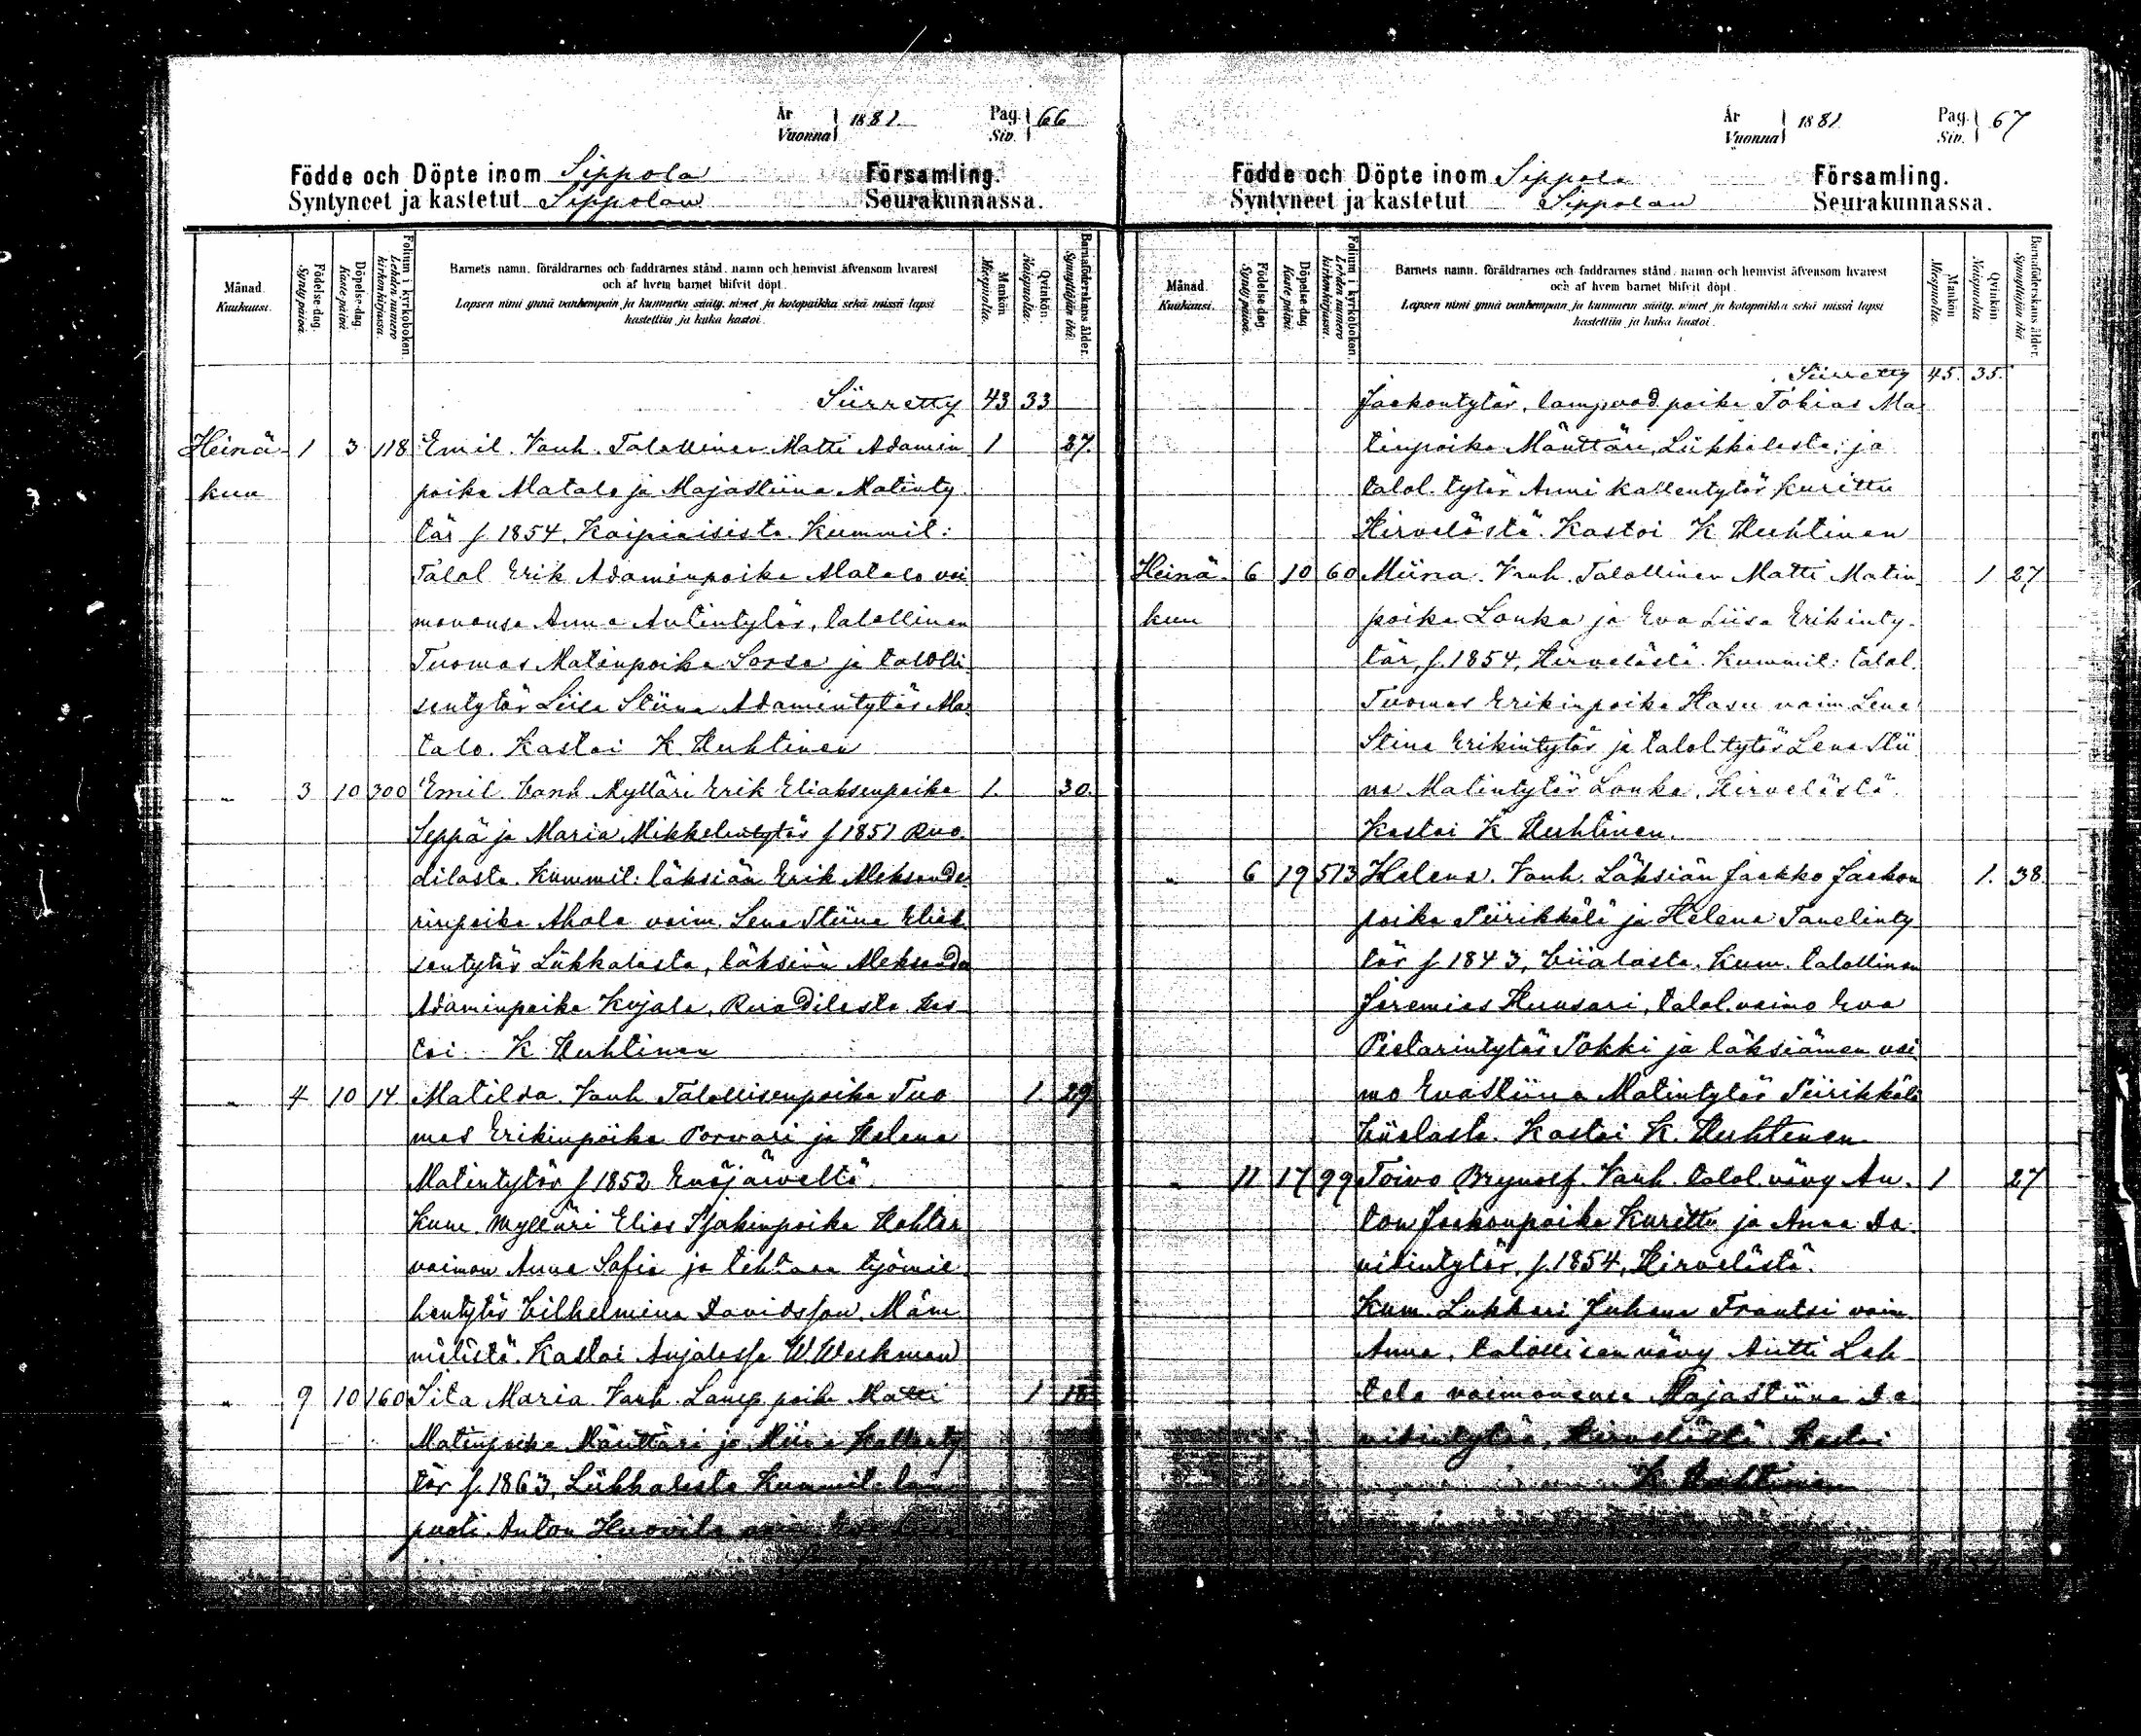 År
Vuonna 1881.
Pag.
Siv. 66
Födde och Döpte inom Sippola Församling.
Syntyneet ja kastetut Sippolan Seurakunnassa.
Månad.
Kuukausi.
Födelse-dag.
Syntypäivä.
Döpelse-dag.
Kaste-päivä.
Folium i kyrkoboken.
Lehden numero kirkonkirjassa.
Barnets namn, föräldrarnes och faddrarnes stånd, namn och hemvist äfvensom hvarest
och af hvem barnet blifvit döpt.
Lapsen nimi ynnä vanhempain ja kummein sääty, nimet ja kotopaikka sekä missä lapsi
kastettiin ja kuka kastoi.
Mankön.
Miespuolia.
Qvinkön.
Naispuolia.
Barnaföderskans ålder.
Synnyttäjän ikä.
Siirretty 43 33
Heinä- 1 3 118 Emil. Vanh. Talollinen Matti Adamin 1 27.
kuu poika Matalo ja Majastiina Matinty
tär f. 1854, Kaipiaisista. Kummit:
Talol Erik Adaminpoika Matalo vai
monensa Anna Antintytär, talollinen
Tuomas Matinpoika Sorsa ja talolli
sentytär Liisa Stiina Adamintytär Ma
talo. Kastoi K. Huhtinen
" 3 10 300 Emil. Vanh Mylläri Erik Eliaksenpoika 1. 30.
Seppä ja Maria Mikkelintytär f 1851 Ruo
dilasta. Kummit: läksiän Erik Aleksande
rinpoika Ahola vaim. Lena Stiina Elias
sentytär Liikkalasta, läksiän Aleksander
Adaminpoika Kujala, Ruodilasta. Kas
toi K. Huhtinen
" 4 10 14. Matilda. Vanh Talollisenpoika Tuo 1. 29
mas Erikinpoika Porvari ja Helena
Matintytär f 1852 Enäjärveltä.
Kum. Mylläri Elias Isakinpoika
vaimon Anna Sofia ja tehtaan työmie
hentytär Vilhelmina Davidsson, Mäm
mälästä. Kastoi Anjalassa W. Weckman
" 9 10 160 Iita Maria. Vanh. Lamp. poika Matti 1 18.
Matinpoika Mänttäri ja Miina Kallenty
tär f. 1863, Liikkalasta Kummit: lam
puoti Anton Huovila
År
Vuonna 1881
Pag.
Siv. 67
Födde och Döpte inom Sippola Församling.
Syntyneet ja kastetut Sippolan Seurakunnassa.
Månad.
Kuukausi.
Födelse-dag.
Syntypäivä.
Döpelse-dag.
Kaste-päivä.
Folium i kyrkoboken.
Lehden numero kirkonkirjassa.
Barnets namn, föräldrarnes och faddrarnes stånd, namn och hemvist äfvensom hvarest
och af hvem barnet blifvit döpt.
Lapsen nimi ynnä vanhempain ja kummein sääty, nimet ja kotopaikka sekä missä lapsi
kastettiin ja kuka kastoi.
Mankön
Miespuolia.
Qvinkön
Naispuolia
Barnaföderskans ålder.
Synnyttäjän ikä
Siirretty 45. 35.
Jaakontytär, lampuod. poika Tobias Ma
tinpoika Mänttäri, Liikkalasta, ja
talol. tytär Anni Kallentytär Kurittu
Hirvelästä. Kastoi K Huhtinen
Heinä- 6 10 60 Miina. Vanh. Talollinen Matti Matin 1 27
kuu poika Lonka ja Eva Liisa Erikinty-
tär, f. 1854, Hirvelästä. Kummit: talol.
Tuomas Erikinpoika Hasu vaim. Lena
Stina Erikintytär ja talol. tytär Lena Stii
na Matintytär Lonka, Hirvelästä.
Kastoi K Huhtinen.
" 6 19 513 Helena. Vanh. Läksiän Jaakko Jaakon 1. 38
poika Piirikkälä ja Helena Tanelinty
tär f. 1843, Viialasta. Kum. talollinen
Jeremias Huusari, talol. vaimo Eva
Pietarintytär Tokki ja läksiämen vai
mo Evastiina Matintytär Piirikkälä
Viialasta. Kastoi K. Huhtinen
" 11 17 99 Toivo Brynolf. Vanh. talol. vävy An- 1 27
ton Jaakonpoika Kurittu ja Anna Da
vidintytär, f. 1854, Hirvelästä.
Kum. Lukkari Juhana Frantsi vaim.
Anna, talollisen vävy Antti Leh
tela vaimonensa Majastiina Da
vidintytär, Hirvelästä. Kastoi
K Huhtinen